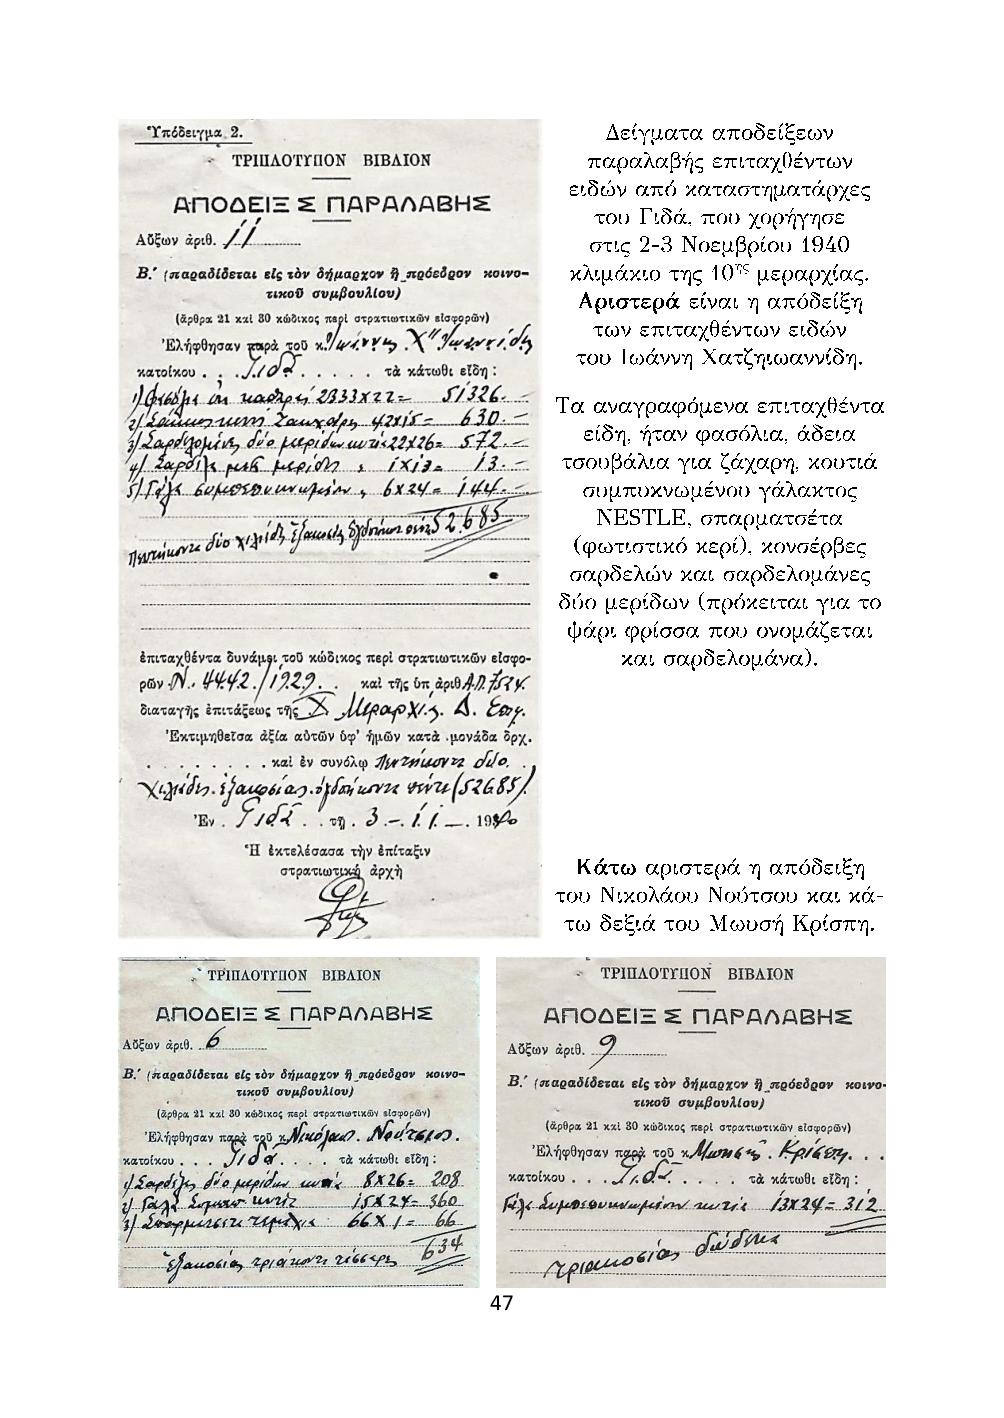 Ὑπόδειγμα 2.
ΤΡΙΠΛΟΤΥΠΟΝ ΒΙΒΛΙΟΝ
ΑΠΟΔΕΙΞ Σ ΠΑΡΑΛΑΒΗΣ
Αὔξων ἀριθ. 11
Β.΄ (παραδίδεται εἰς τὸν δήμαρχον ἢ πρόεδρον κοινο-
τικοῦ συμβουλίου)
(ἄρθρα 21 καὶ 30 κώδικος περὶ στρατιωτικῶν εἰσφορῶν)
Ἐλήφθησαν παρὰ τοῦ κ. Ἰωάννης Χ" Ἰωαννίδης
κατοίκου . . . Γιδᾶ . . . . . τὰ κάτωθι εἴδη :
1) 2333x22= 51326.-
2) Σάκκοι κενοί ζακχάρης 42x15= 630.-
3) Σαρδελομάνες δύο μερίδων κυτία 22x26= 572.-
4) 1x13= 13.-
5) Γάλα συμπεπυκνωμένον " 6x24= 144.-
52685
Πεντήκοντα δύο χιλιάδες ἑξακόσια ὀγδοήκοντα πέντε
ἐπιταχθέντα δυνάμει τοῦ κώδικος περὶ στρατιωτικῶν εἰσφο-
ρῶν Ν. 4442/1929. καὶ τῆς ὑπ ἀριθ Α.Π. 7524
διαταγῆς ἐπιτάξεως τῆς Χ Μεραρχίας. Δ. Επιμ.
Ἐκτιμηθεῖσα ἀξία αὐτῶν ὑφ' ἡμῶν κατὰ μονάδα δρχ.
. . . . . . . . καὶ ἐν συνόλῳ Πεντήκοντα δύο.
χιλιάδες ἑξακόσιαι ὀγδοήκοντα πέντε (52685)
Ἐν . Γιδᾶ . . τῇ . 3 - 11 - . 1940
Ἡ ἐκτελέσασα τὴν ἐπίταξιν
στρατιωτικὴ ἀρχὴ
Δείγματα αποδείξεων
παραλαβής επιταχθέντων
ειδών από καταστηματάρχες
του Γιδά, που χορήγησε
στις 2-3 Νοεμβρίου 1940
κλιμάκιο της 10ης μεραρχίας.
Αριστερά είναι η απόδείξη
των επιταχθέντων ειδών
του Ιωάννη Χατζηιωαννίδη.
Τα αναγραφόμενα επιταχθέντα
είδη, ήταν φασόλια, άδεια
τσουβάλια για ζάχαρη, κουτιά
συμπυκνωμένου γάλακτος
NESTLE, σπαρματσέτα
(φωτιστικό κερί), κονσέρβες
σαρδελών και σαρδελομάνες
δύο μερίδων (πρόκειται για το
ψάρι φρίσσα που ονομάζεται
και σαρδελομάνα).
Κάτω αριστερά η απόδειξη
του Νικολάου Νούτσου και κά-
τω δεξιά του Μωυσή Κρίσπη.
ΤΡΙΠΛΟΤΥΠΟΝ ΒΙΒΛΙΟΝ
ΑΠΟΔΕΙΞ Σ ΠΑΡΑΛΑΒΗΣ
Αὔξων ἀριθ. 6
Β.΄ (παραδίδεται εἰς τὸν δήμαρχον ἢ πρόεδρον κοινο-
τικοῦ συμβουλίου)
(ἄρθρα 21 καὶ 30 κώδικος περὶ στρατιωτικῶν εἰσφορῶν)
Ἐλήφθησαν παρὰ τοῦ κ. Νικόλαος Νούτσιος.
κατοίκου . . . Γιδᾶ . . . . τὰ κάτωθι εἴδη :
1) Σαρδέλες δύο μερίδων κυτία 8x26= 208
2) Γάλα κυτία 15x24= 360
3) Σπαρματσέτα τεμάχια 66x1= 66
634
Ἑξακόσιαι τριάκοντα τέσσαρες
ΤΡΙΠΛΟΤΥΠΟΝ ΒΙΒΛΙΟΝ
ΑΠΟΔΕΙΞ Σ ΠΑΡΑΛΑΒΗΣ
Αὔξων ἀριθ. 9
Β.΄ (παραδίδεται εἰς τὸν δήμαρχον ἢ πρόεδρον κοινο-
τικοῦ συμβουλίου)
(ἄρθρα 21 καὶ 30 κώδικος περὶ στρατιωτικῶν εἰσφορῶν)
Ἐλήφθησαν παρὰ τοῦ κ. Μωυσῆς . Κρίσπη. . . .
κατοίκου . . . . Γιδᾶ . . . . . τὰ κάτωθι εἴδη :
Γάλα Συμπεπυκνωμένον κυτία 13x24= 312
τριακόσιαι δώδεκα
47